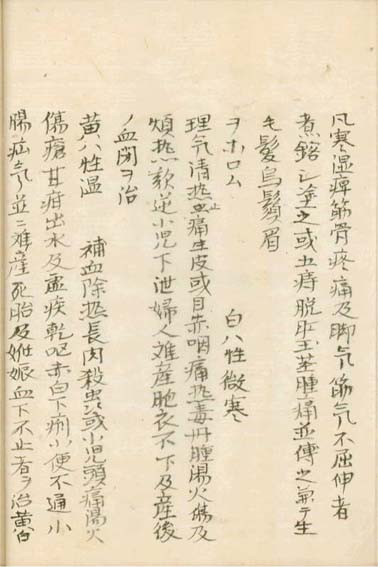 凡寒湿痺筋骨疼痛及脚气筋气不屈伸者
煮鎔シ塗之或五痔脱肛玉茎腫痛並傳之兼テ生
毛髪烏鬚眉
ヲホロム　　　　　白ハ性微寒
理气清热止痛生皮或目赤咽痛热毒丹腫湯火傷及
煩热欬逆小児下泄婦人难産胞衣不下及産後
ノ血閉ヲ治
黄ハ性温　補血除热長肉殺虫或小児頭痛湯火
傷瘡甘疳出水及虚疾乾呕赤白下痢小便不通小
腸疝气並ニ难産死胎及姙娠血下不止者ヲ治黄白